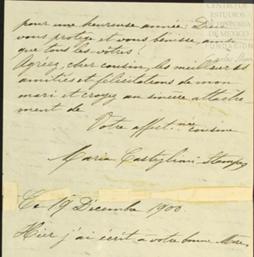 pour une heureuse année! Dieu
vous protège et vous bénisse, ainsi
que tous les vôtres!
Agréez, cher cousin, les meilleures
amitiés et félicitations de mon
mari et croyez au sincère attache
ment de
Votre affect.née cousine
Maria Castiglioni
Ce 19 Décembre 1900
Hier j'ai écrit à votre bonne Mère
CENTRO DE
ESTUDIOS
DE HISTORIA
DE MÉXICO